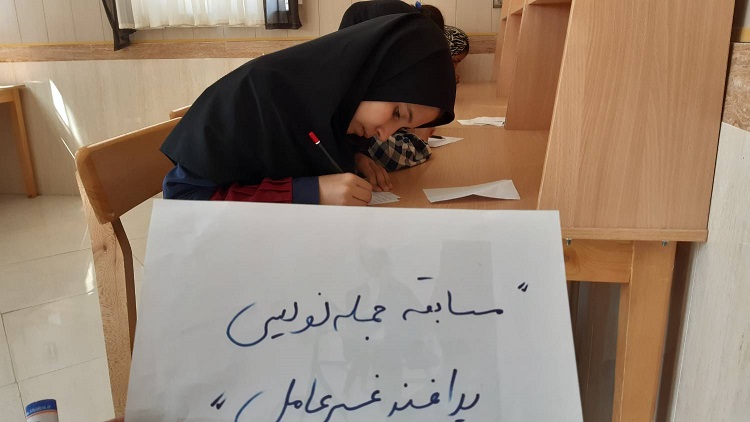 "مسابقه جمله نویسی
پدافند غیرعامل"